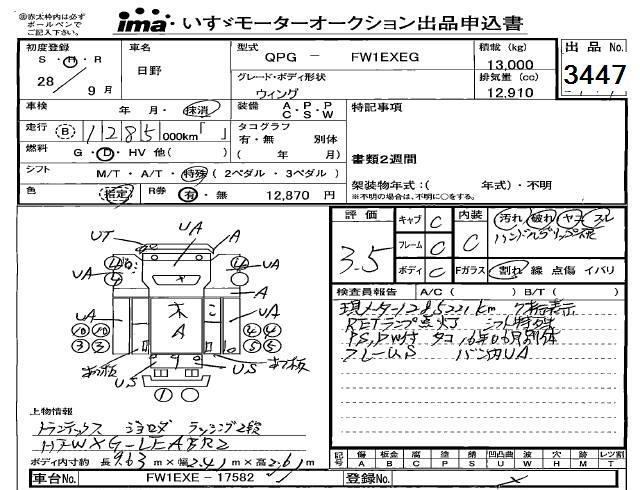 ※赤太枠内は必ず
ボールペンで
ご記入下さい。
ima いすゞモーターオークション出品申込書
初度登録 S・H・R 28 9月
車名 日野
型式 QPG － FW1EXEG
積載 (kg) 13,000
出品 No. 3447
グレード・ボディ形状 ウィング
排気量 (cc) 12,910
車検 年 月・抹消
装備 A・P・P C S W
特記事項
走行 B 1285 000km「 」
タコグラフ 有・無 別体 ( 年 月)
燃料 G・D・HV 他( )
書類2週間
シフト M/T・A/T・特殊 ( 2ペダル・3ペダル )
架装物年式:( 年式)・不明
※不明の場合は、不明に○をする。
色 指定 R券 有・無 12,870 円
評価 3.5
キャブ C
フレーム C
ボディ C
内装 C
汚れ 破れ ヤケ スレ
Fガラス 割れ 線 点傷 イバリ
UT UA A
UA UA
A
UA 木 A UA
US US
検査員報告 A/C ( ) B/T ( )
現メーター1285221km 7桁表示
RETランプ点灯 シフト特殊
上物情報
トランテックス ヨロダ ラッシング2段
ボディ内寸約 長 9.63 m×幅 2.41 m×高 2.61 m
記号 傷 A 板金 B 腐 C 塗 P 錆 S 凹凸曲 U 波 W 穴 H 跡 M レツ割 T
車台No. FW1EXE－17582
登録No.